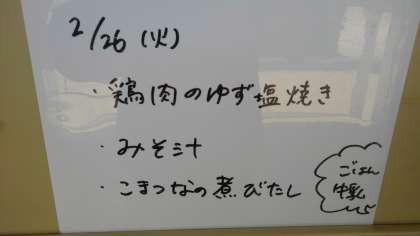 2/26(火)
・鶏肉のゆず塩焼き
・みそ汁
・こまつなの煮びたし
ごはん
牛乳